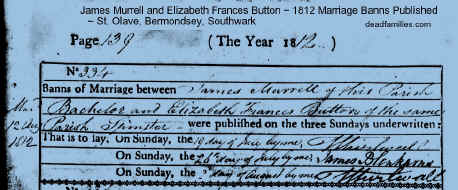 James Murrell and Elizabeth Frances Button ~ 1812 Marriage Banns Published
~ St. Olave, Bermondsey, Southwark
deadfamilies.com
Page 139 (The Year 1812 )
No 334
Banns of Marriage between James Murrell of this Parish
Bachelor and Elizabeth Frances Button of the same
Parish Spinster were published on the three Sundays underwritten:
12 Aug 1812
That is to say, On Sunday, the 19 day of July by me,
On Sunday, the 26 day of July by me, James
On Sunday, the 2 day of August by me,